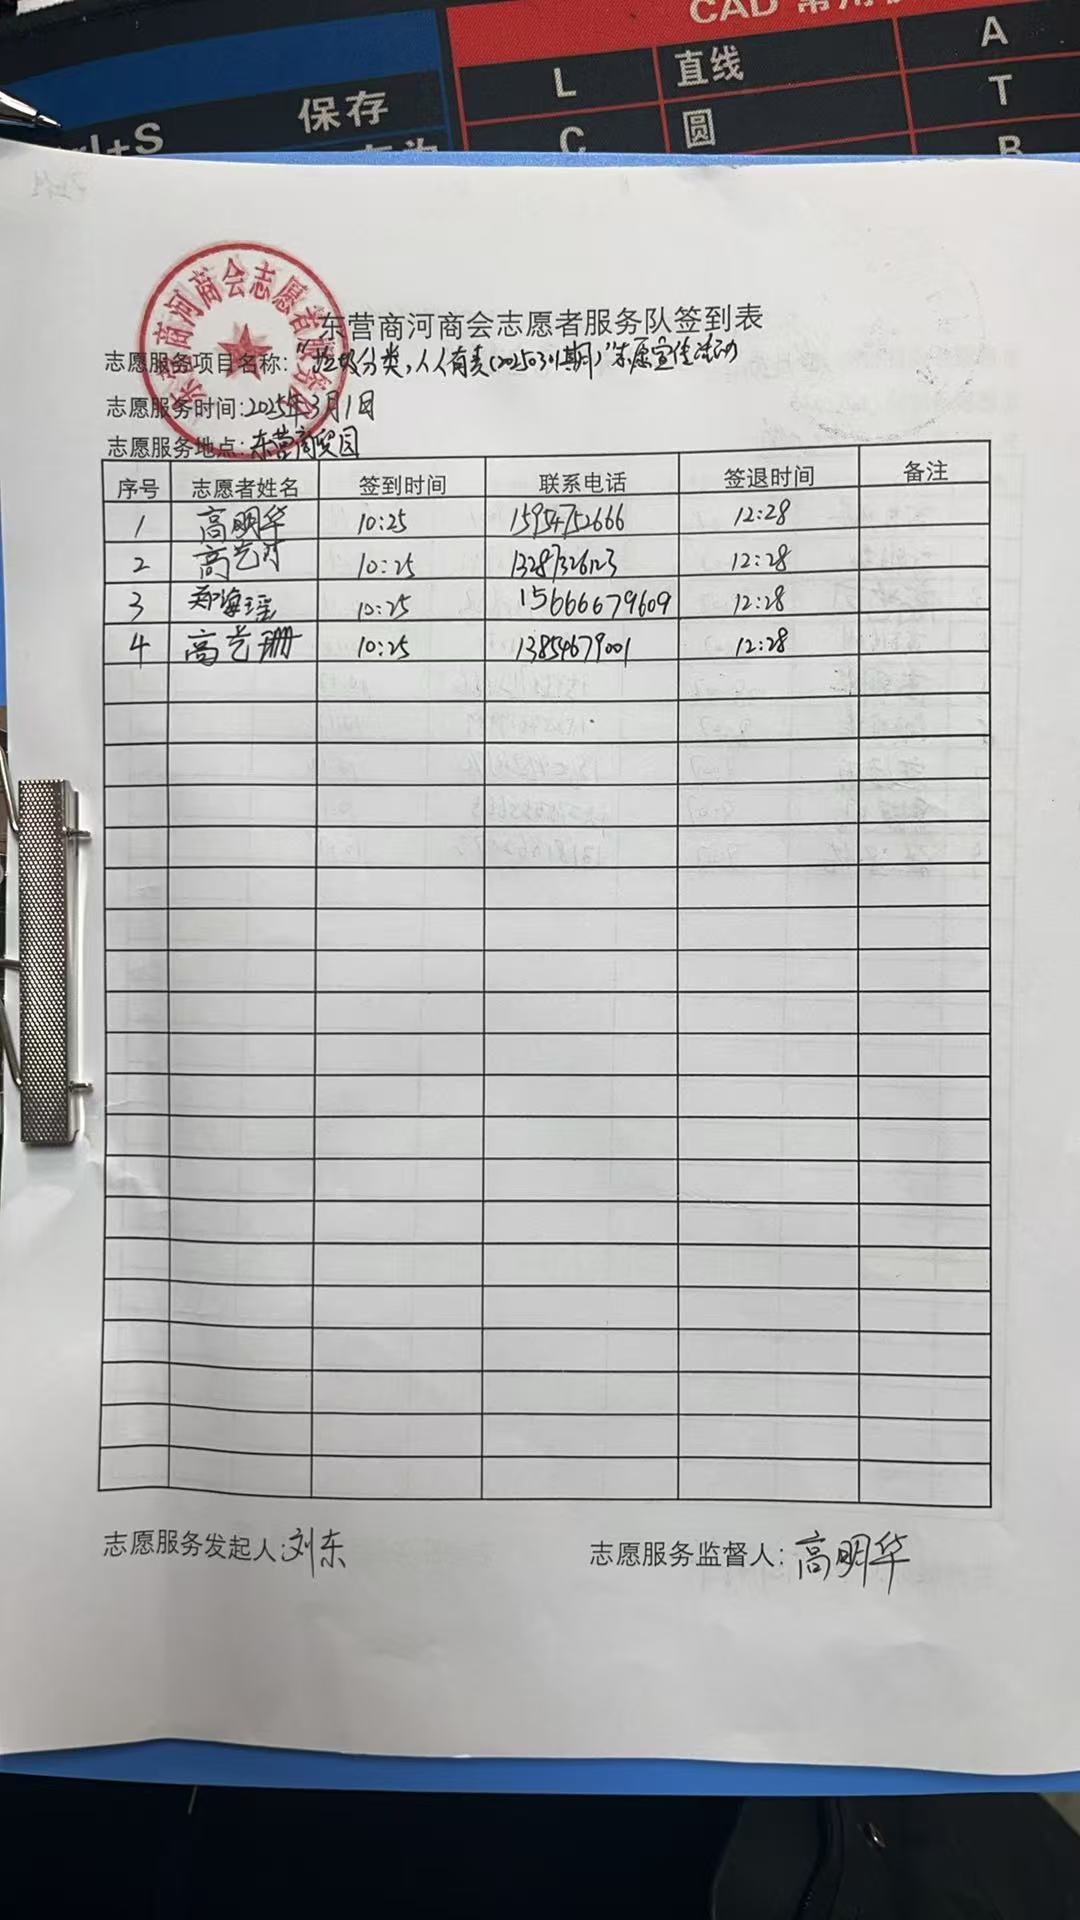 CAD 常用
L 直线 A
保存
C 圆 T
rl+S
B
东营商河商会志愿者服务队
东营商河商会志愿者服务队签到表
志愿服务项目名称:“垃圾分类,人人有责(20250301期)”志愿宣传活动
志愿服务时间:2025年3月1日
志愿服务地点:东营商贸园
序号 志愿者姓名 签到时间 联系电话 签退时间 备注
1 高明华 10:25 15954752666 12:28
2 高艺 10:25 13287326123 12:28
3 郑海瑶 10:25 15666679609 12:28
4 高艺珊 10:25 13854679001 12:28
志愿服务发起人:刘东 志愿服务监督人:高明华